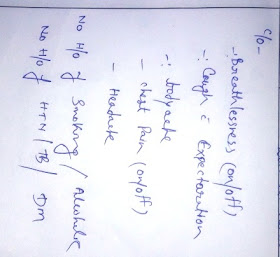 c/o -
-: Breathlessness (on/off)
-: Cough c̄ Expectoration
-: bodyache
- chest Pain (on/off)
- Headache
No H/o of Smoking / Alcoholic
No H/o of HTN / TB / DM